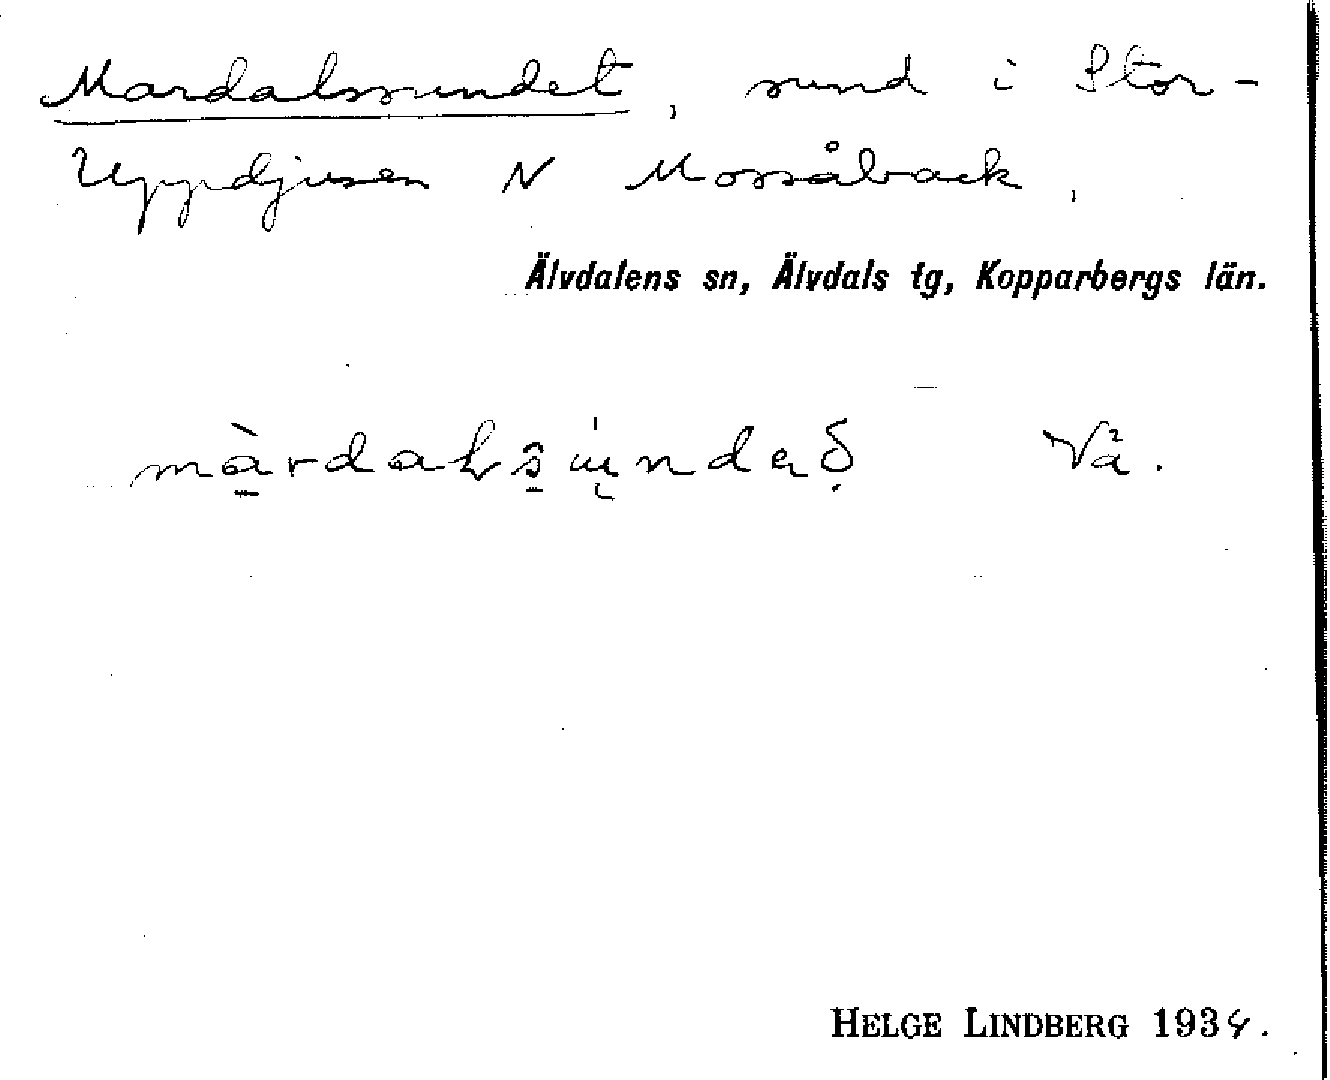 Mardalssundet, sund i Stor-
Uppdjusen N Mossåback,
Älvdalens sn, Älvdals tg, Kopparbergs län.
Vå.
HELGE LINDBERG 1934.